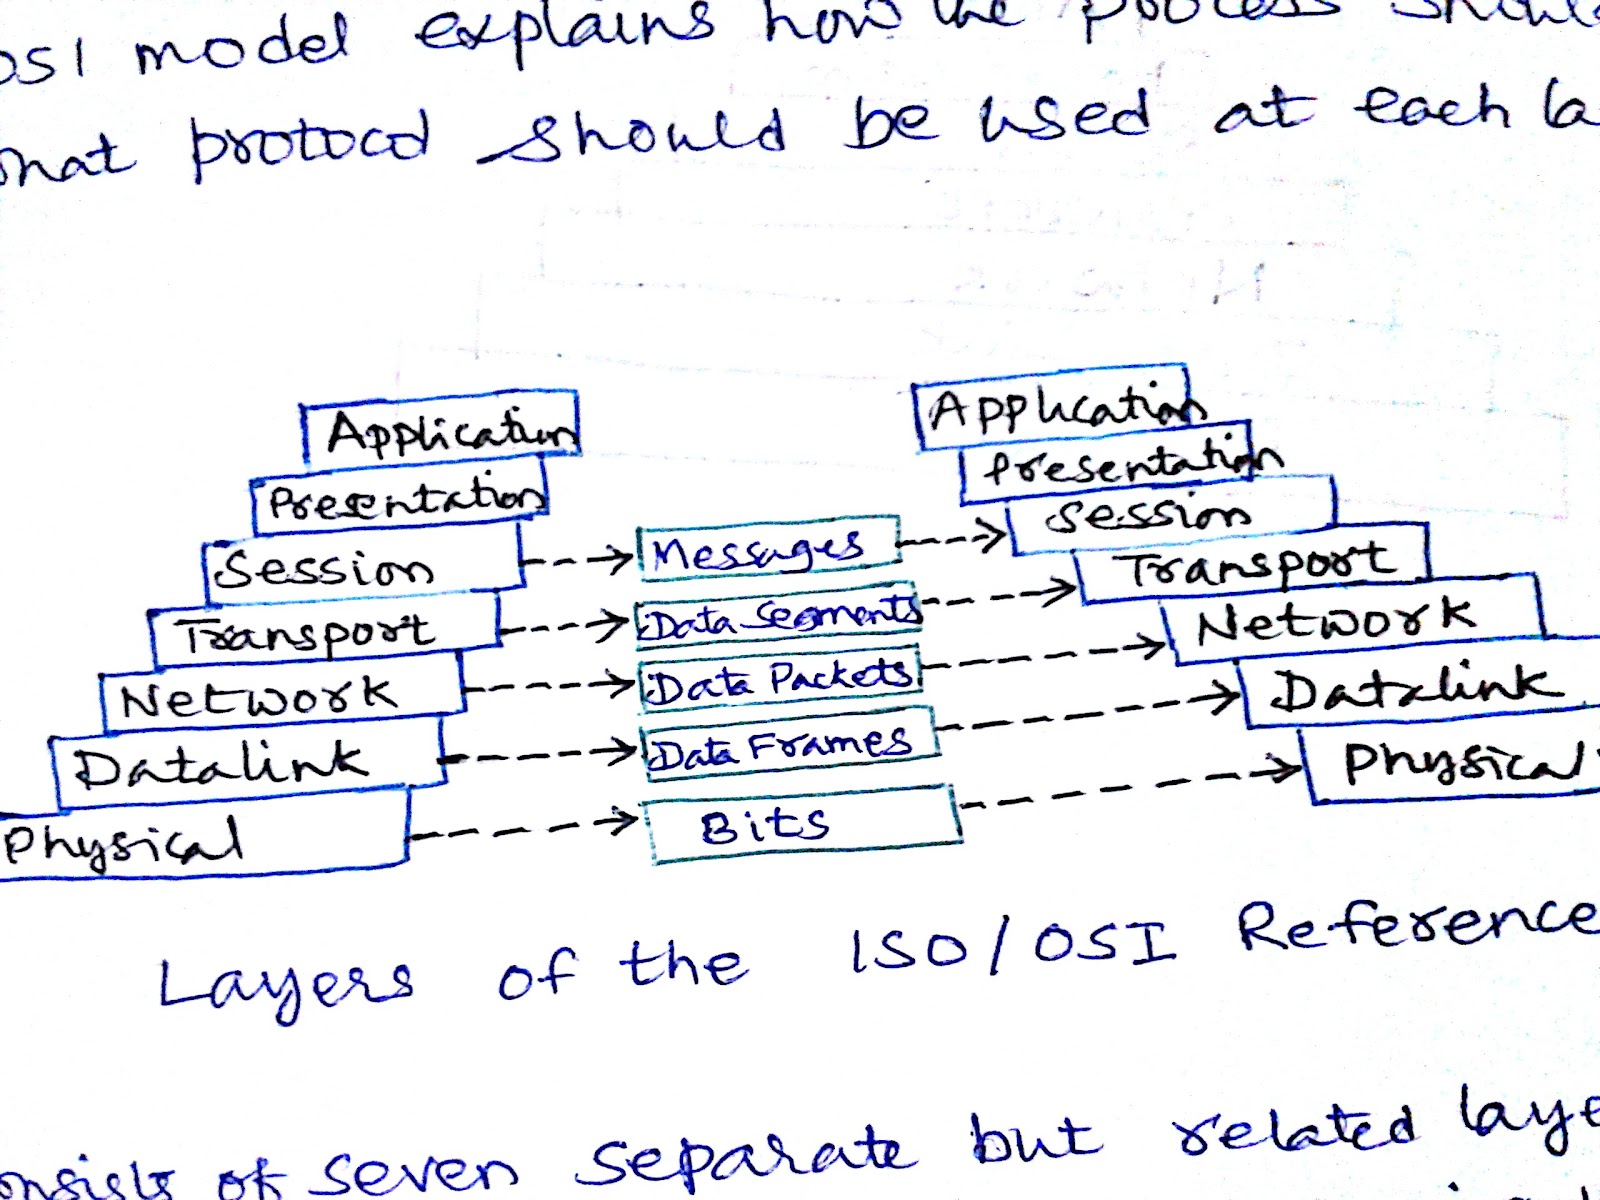 OSI model explains how the process should
what protocol should be used at each la
Application
Presentation
Session
Transport
Network
Datalink
Physical
Messages
Data Segments
Data Packets
Data Frames
Bits
Application
Presentation
Session
Transport
Network
Datalink
Physical
Layers of the ISO/OSI Reference
onsists of seven separate but related laye